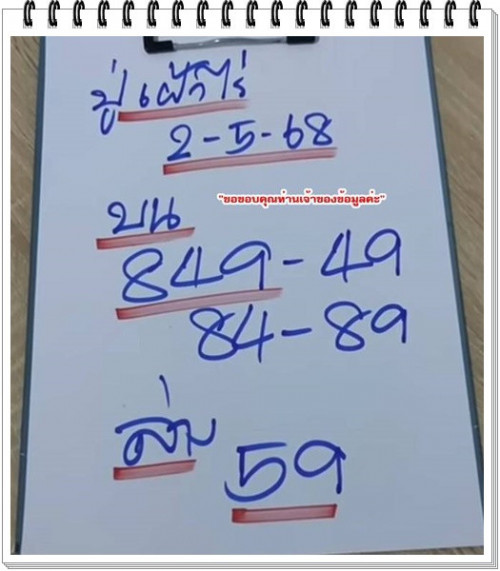 ปู่เฝ้าไร่
2-5-68
"ขอขอบคุณท่านเจ้าของข้อมูลค่ะ"
บน
849-49
84-89
ล่าง
59